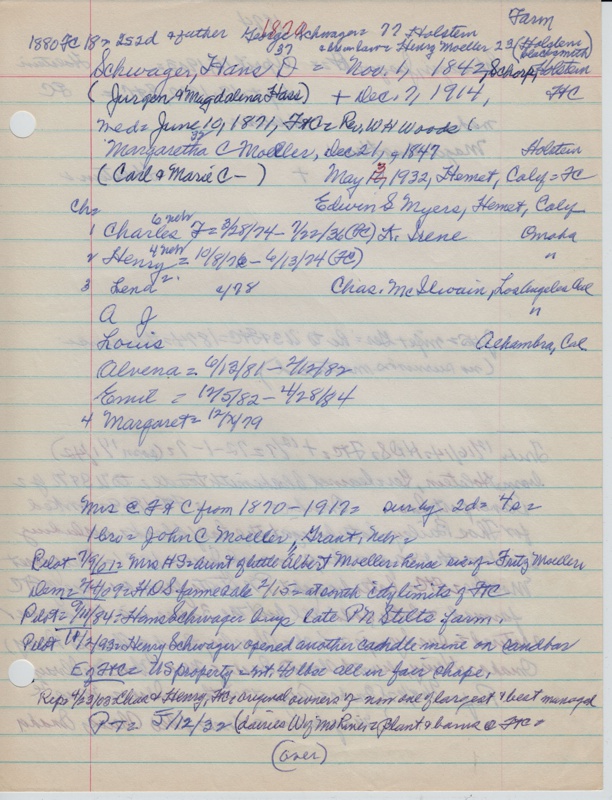 Farm
1870
1880 FC 18 = 252d & father George Schwager = 77 Holstein
37 = bro in law = Henry Moeller 23 (Holstein blacksmith)
Schwager, Hans D = Nov. 1, 1842, Schorp, Holstein
(Jurgen & Magdalena Hass) + Dec. 7, 1914, FtC
med = June 10, 1871, FtC = Rev. W H Woods
32
Margaretha C Moeller, Dec 21, 1847 Holstein
(Carl & Marie C —) May 13, 1932, Hemet, Calif = FC
Edwin S Myers, Hemet, Calif
Ch =
6 nebr
1 Charles F = 3/28/74 - 7/22/36 (FC) K. Irene Omaha
4 nebr
2 Henry = 10/8/76 - 6/13/74 (FC) "
2.
3 Lena 2/78 Chas. McIlwain, Los Angeles Cal
A J "
Louis Alhambra, Cal.
Alvena = 6/13/81 - 2/12/82
Emil = 12/5/82 - 4/28/84
4 Margaret = 12/1/79
Mrs @ FtC from 1870 - 1917 = surv by 2d = 4s =
1 bro = John C Moeller, Grant, Nebr =
Pilot 7/9/01 = Mrs HS = aunt of little Albert Moeller = hence sis of Fritz Moeller
Dem = 09 = HDS farm sale 2/15 = at south city limits of FtC
Pilot = 84 = Hans Schwager buys late P N Stilts farm.
Pilot 93 = Henry Schwager opened another mine on sandbar
E of FtC = US property = all in fair shape.
Rep 4/23/03 = Chas & Henry, FtC = original owners of now one of largest & best managed
P-T = 5/12/32 (dairies W of Mo River = plant & barns @ FtC =
(over)